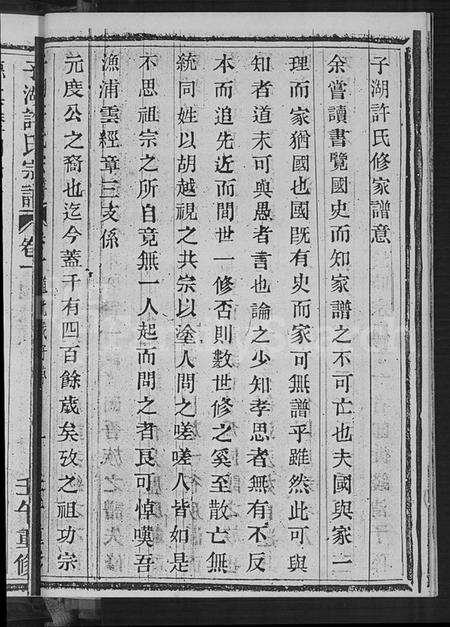 子湖許氏修家譜意
余嘗讀書覽國史而知家譜之不可亡也夫國與家一
理而家猶國也國旣有史而家可無譜乎雖然此可與
知者道未可與愚者言也論之少知孝思者無有不反
本而追先近而間世一修否則數世修之奚至散亡無
統同姓以胡越視之共宗以塗人問之嗟嗟人皆如是
不思祖宗之所自竟無一人起而問之者良可悼嘆吾
漁浦雲經章三支係
元度公之裔也迄今蓋千有四百餘歲矣攷之祖功宗
子湖許氏宗譜 卷一
壬午重修